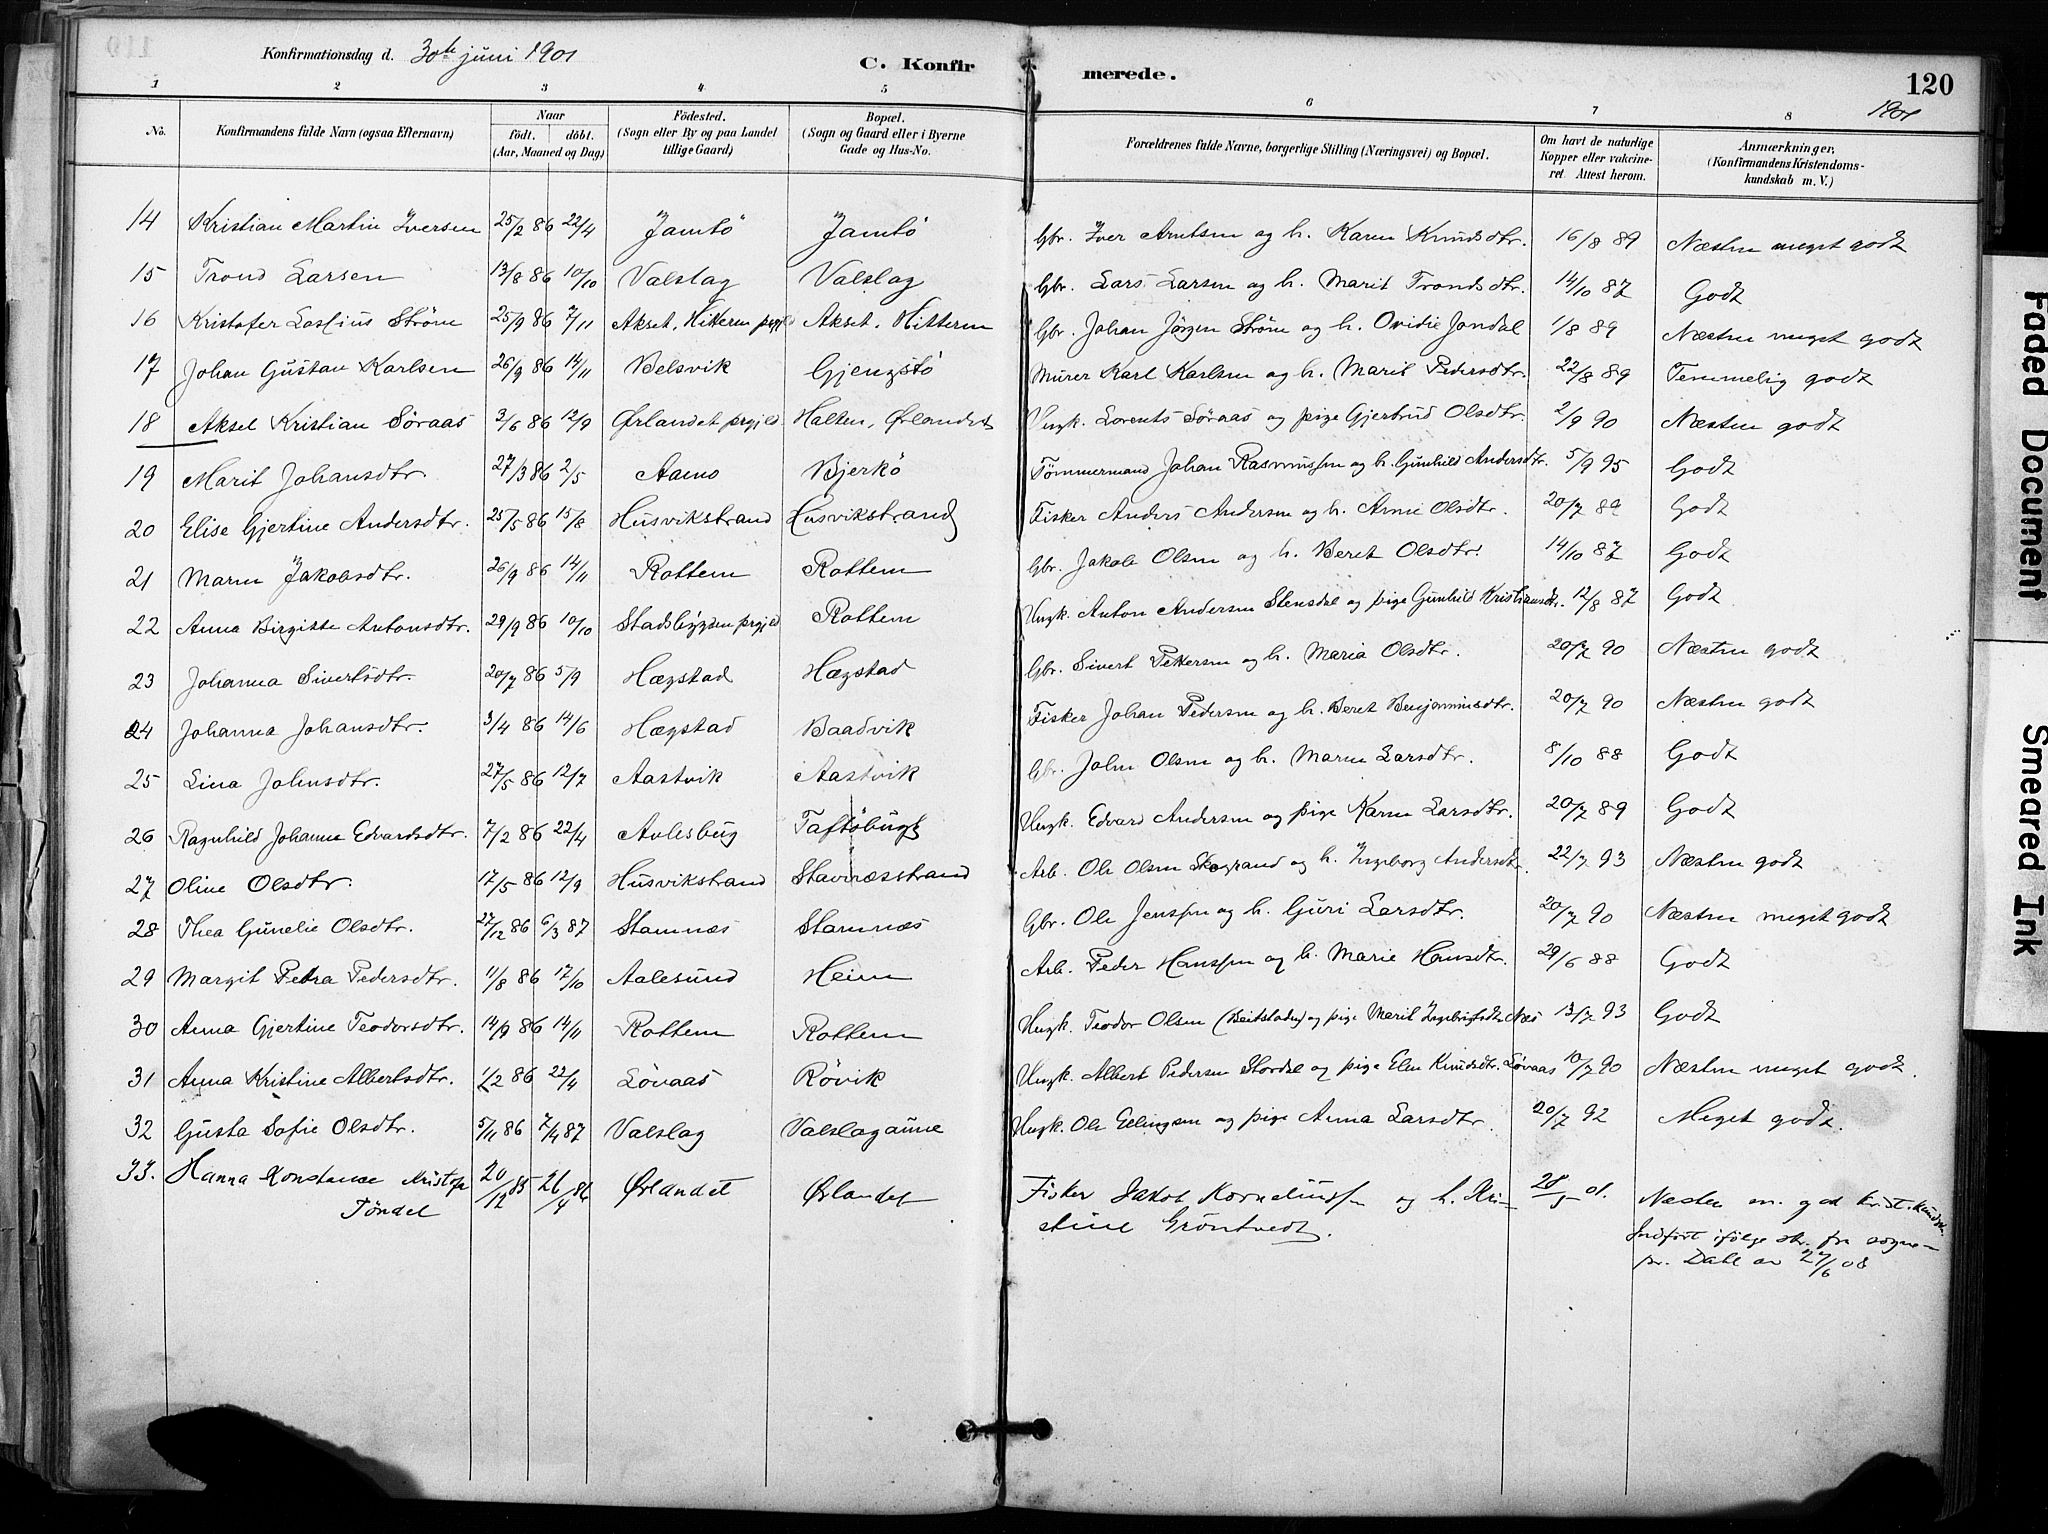 Konfirmationsdag d. 30te juni 1901 C. Konfirmerede. 120
1901
1 2 3 4 5 6 7 8
No. Konfirmandens fulde Navn (ogsaa Efternavn) Naar født. døbt. (Aar, Maaned og Dag) Fødested. (Sogn eller By og paa Landet tillige Gaard) Bopæl. (Sogn og Gaard eller i Byerne Gade og Hus-No. Forældrenes fulde Navne, borgerlige Stilling (Næringsvei) og Bopæl. Om havt de naturlige Kopper eller vakcineret. Attest herom. Anmærkninger, (Konfirmandens Kristendomskundskab m. V.)
14 Kristian Martin Iversen 25/2 86 22/4 Jamtö Jamtö Gbr. Iver Arntsen og h. Karen Knudsdtr. 16/8 89 Næsten meget godt
15 Trond Larsen 13/8 86 10/10 Valslag Valslag Gbr. Lars Larsen og h. Marit Trondsdtr. 14/10 87 Godt
16 Kristofer Strøm 25/9 86 7/11 Akset, Hitteren prgjld Akset, Hitteren Gbr. Johan Jörgen Strøm og h. Ovidie Jondal 1/8 89 Næsten meget godt
17 Johan Gustav Karlsen 26/9 86 14/11 Belsvik Gjengstö Murer Karl Karlsen og h. Marit Pedersdtr. 22/8 89 Temmelig godt
18 Aksel Kristian Söraas 3/6 86 12/9 Ørlandet prgjld Halten, Ørlandet Ungk. Lorents Söraas og pige Gjertrud Olsdtr. 2/9 90 Næsten godt
19 Marit Johansdtr. 27/3 86 2/5 Bjerkö Tömmermand Johan Rasmussen og h. Gunhild Andersdtr. 5/9 95 Godt
20 Elise Gjertine Andersdtr. 25/5 86 15/8 Husvikstrand Husvikstrand Fisker Anders Andersen og h. Olsdtr. 20/7 89 Godt
21 Maren Jakobsdtr. 26/9 86 14/11 Rottem Rottem Gbr. Jakob Olsen og h. Beret Olsdtr. 14/10 87 Godt
22 Anna Birgitte Antonsdtr. 29/9 86 10/10 Stadsbygden prgjld Rottem Ungk. Anton Andersen Stensdal og pige Gunhild Kristiansdtr. 12/8 87 Godt
23 Johanna Sivertsdtr. 20/7 86 5/9 Hægstad Hægstad Gbr. Sivert Pettersen og h. Maria Olsdtr. 20/7 90 Næsten godt
24 Johanna Johansdtr. 3/4 86 14/6 Hægstad Baadvik Fisker Johan Pedersen og h. Beret Benjaminsdtr. 20/7 90 Næsten godt
25 Lina Johnsdtr. 27/5 86 12/7 Aastvik Aastvik Gbr. John Olsen og h. Maren Larsdtr. 8/10 88 Godt
26 Ragnhild Johanne Edvardsdtr. 7/2 86 22/4 Aulesbug Taftöbugt Ungk. Edvard Andersen og pige Karen Larsdtr. 20/7 89 Godt
27 Oline Olsdtr. 17/5 86 12/9 Husvikstrand Stavnæsstrand Arb. Ole Olsen Skogrand og h. Ingeborg Andersdtr. 22/7 93 Næsten godt
28 Thea Gunelie Olsdtr. 27/12 86 6/3 87 Stamnæs Stamnæs Gbr. Ole Jenssen og h. Guri Larsdtr. 20/7 90 Næsten meget godt
29 Margit Petra Pedersdtr. 11/8 86 17/10 Aalesund Heim Arb. Peder Hanssen og h. Marie Hansdtr. 29/6 88 Godt
30 Anna Gjertine Teodorsdtr. 14/9 86 14/11 Rottem Rottem Ungk. Teodor Olsen (Beitstaden) og pige Marit Ingebrigtsdtr. Næs 13/7 93 Godt
31 Anna Kristine Albertsdtr. 1/2 86 22/4 Lövaas Rövik Ungk. Albert Pedersen Stordal og pige Elen Knudsdtr. Lövaas 10/7 90 Næsten meget godt.
32 Gusta Sofie Olsdtr. 5/11 86 7/4 87 Valslag Valslagaune Ungk. Ole Ellingsen og pige Anna Larsdtr. 20/7 92 Meget godt.
33. Hanna Konstance Kristofa 20/12 85 26/4 86 Ørlandet Ørlandet Fisker Jakob Korneliussen og h. Kri- 28/5 01. Næsten m. god krist.kundsk.
Töndel stine Gröntvedt. Indført ifölge skr. fra sogne-
pr. Dahl av 27/6 08
Faded Document Smeared Ink